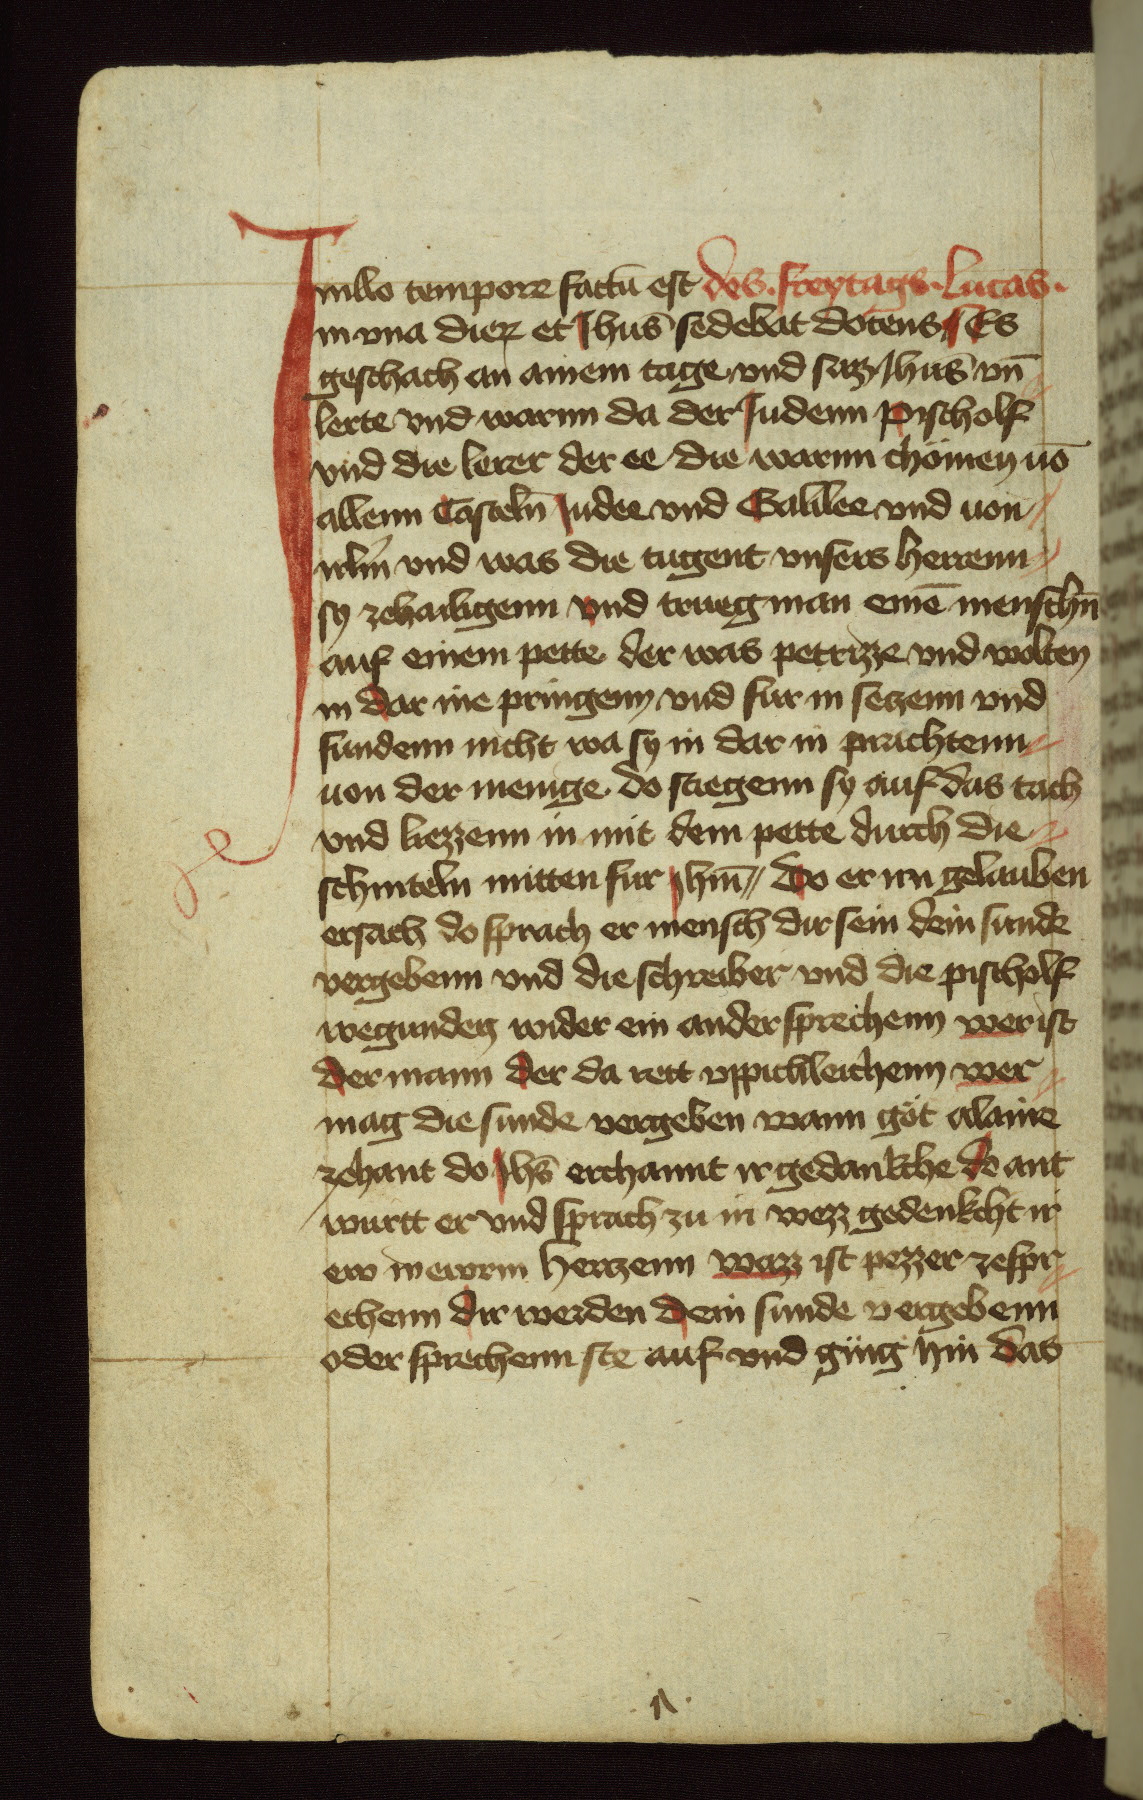 Inillo tempore factū est des . freytags . Lucas .
in vna dieꝝ et Jhūs sedebat docens Es
geschach an ainem tage vnd saz Jhūs vn̄
lerte vnd warnn da der Judenn pischolf
vnd die lerer der ee die warnn chömen uō
allenn Casteln̄ Judee vnd Galilee vnd uon
irl̄m vnd was die tugent vnsers herrenn
sy zehailigenn vnd trueg man einē menschn̄
auf einem pette der was petrizze vnd wolten
in dar ine pringenn vnd fur in setzenn vnd
fundenn nicht wa sy in dar in prachtenn
uon der menige do stiegenn sy auf das tach
vnd liezzenn in mit dem pette durch die
schinteln mitten fur Jhm̄ Do er irn gelauben
ersach do sprach er mensch dir sein dein sunde
vergebenn vnd die schreiber vnd die pischolf
wegunden wider ein ander sprechenn wer ist
der mann der da rett vppichleichenn wer
mag die sunde vergeben wann got alaine
zehant do Jhs̄ erchannt ir gedankche do ant
wurtt er vnd sprach zu in wezz gedenkcht ir
ew in ewrm hertzenn wazz ist pezzer zespr
echenn dir werden dein sunde vergebenn
oder sprechenn ste auf vnd ging hin das